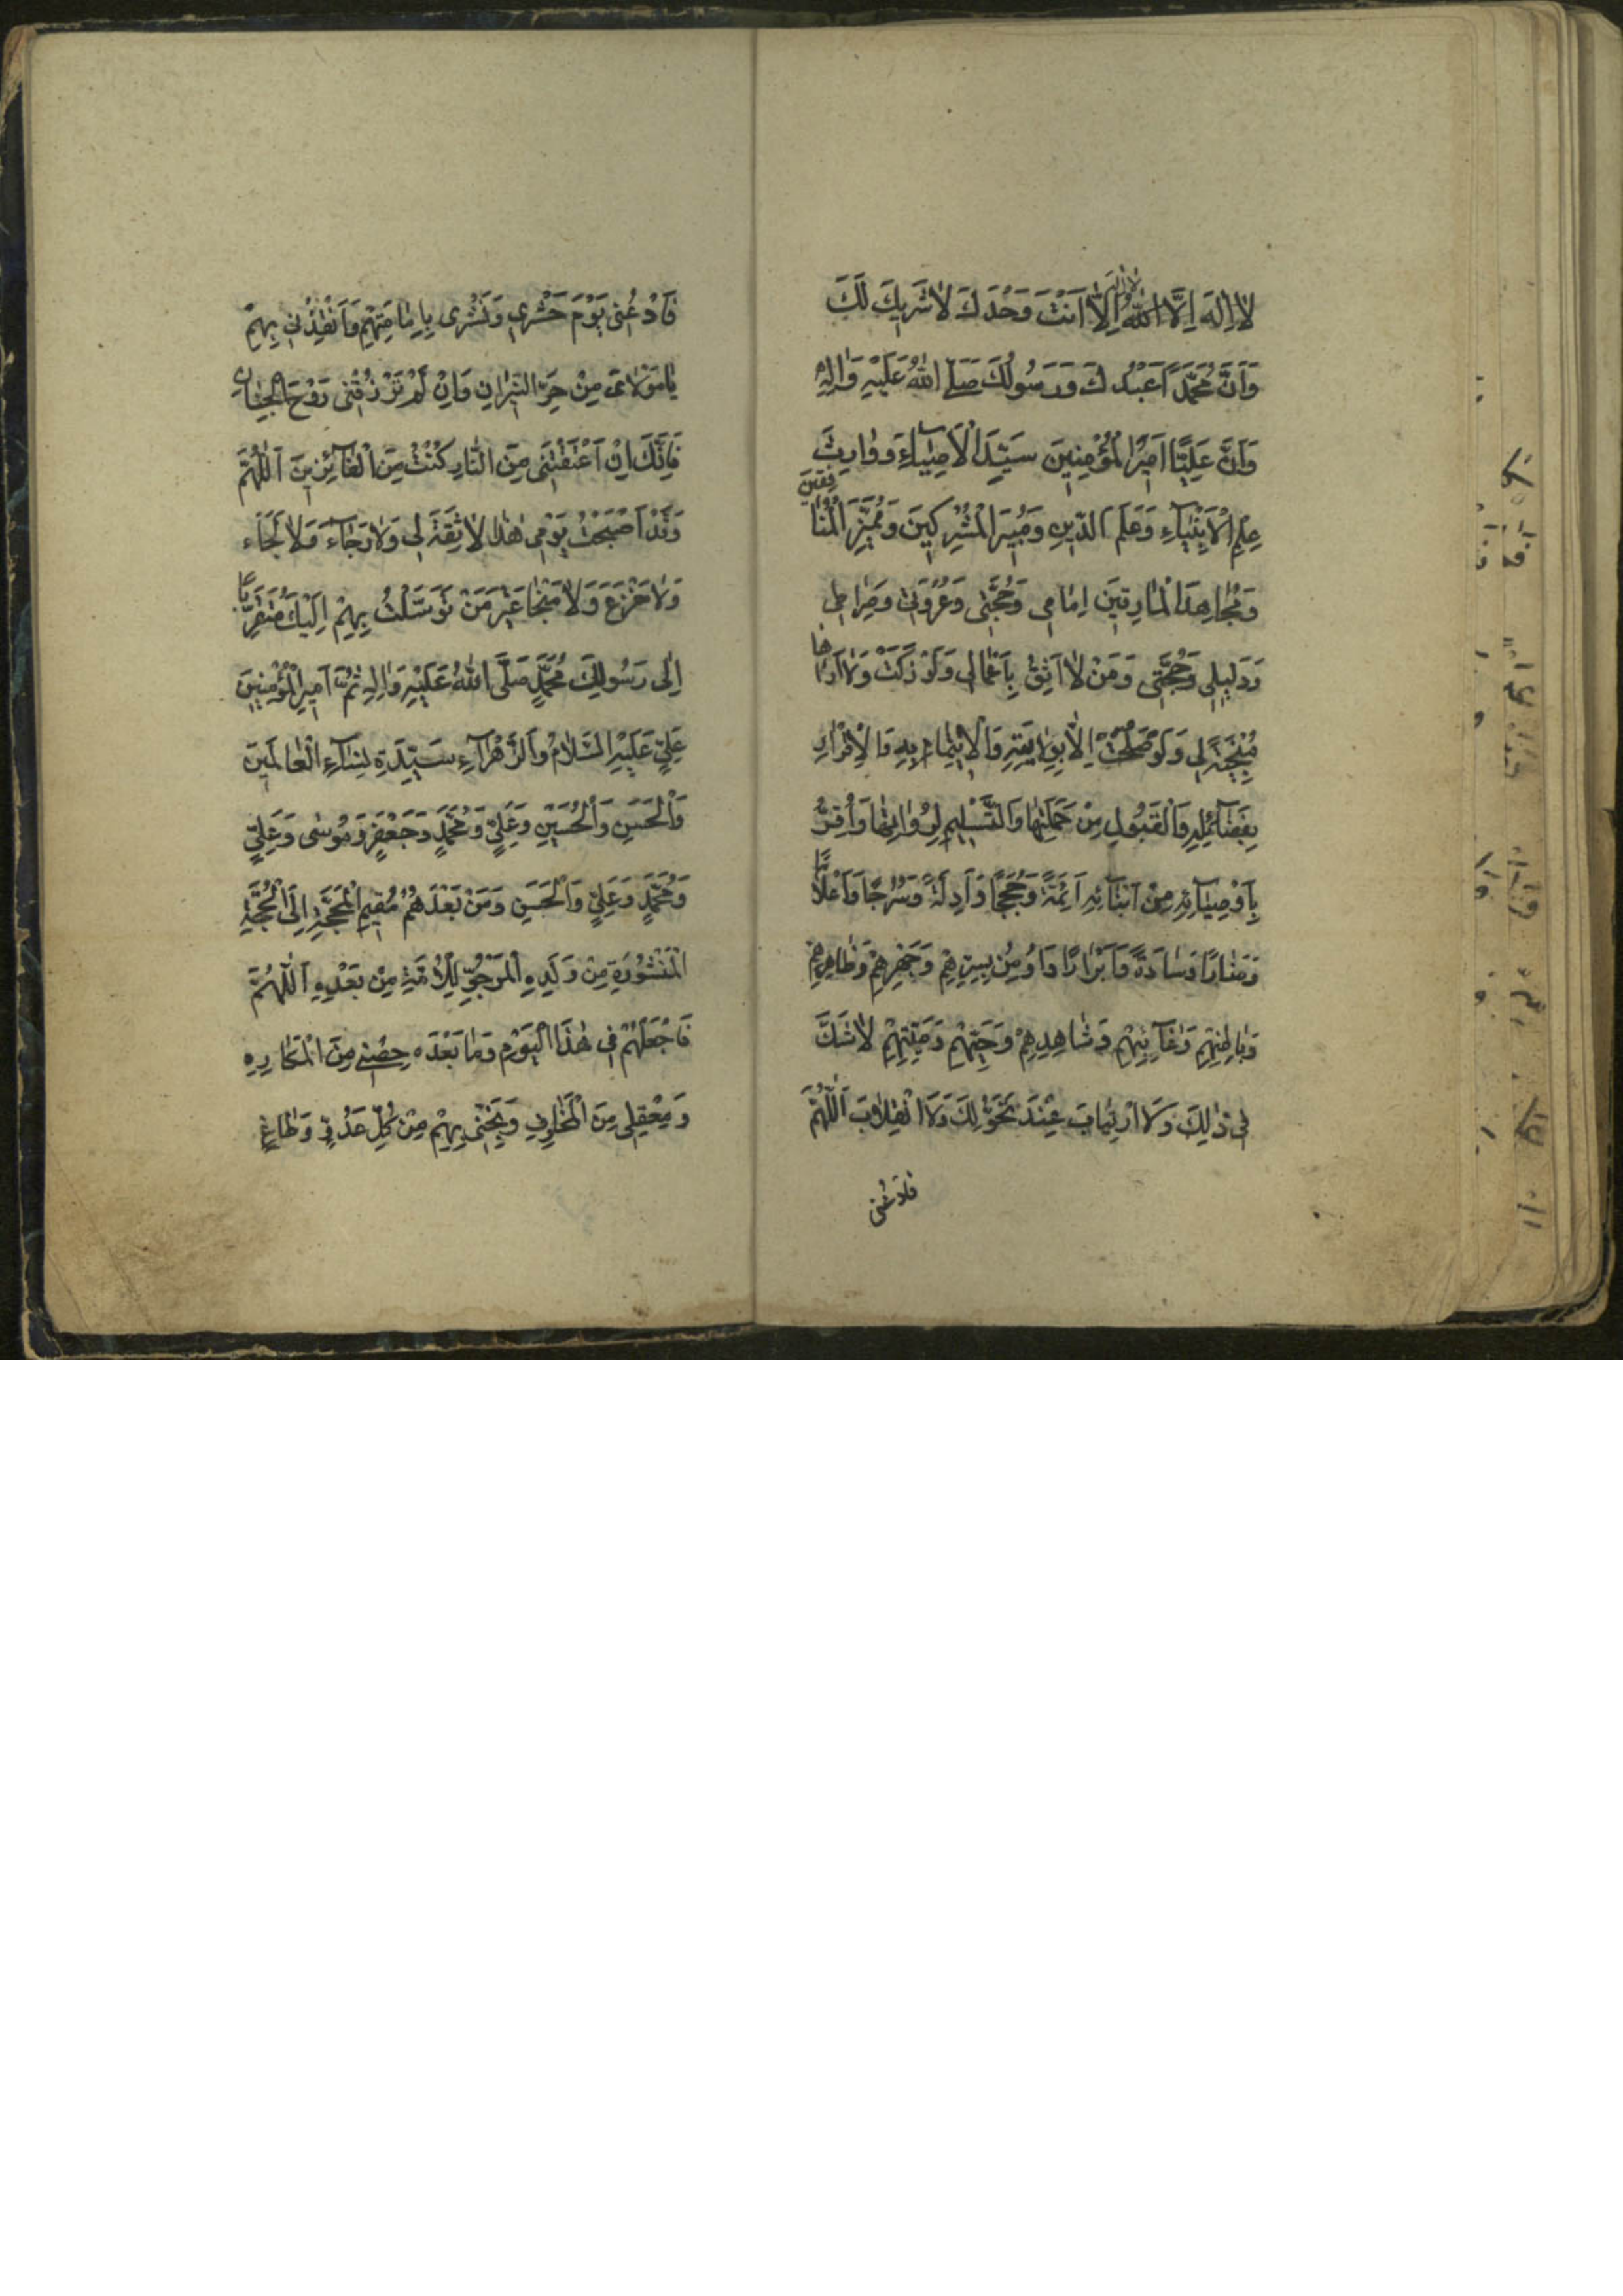 لَا اِلٰهَ اِلَّا اللّٰهُ لا اله اِلَّا اَنْتَ وَحْدَكَ لَا شَرِيكَ لَكَ
وَاَنَّ مُحَمَّدًا عَبْدُكَ وَرَسُولُكَ صَلَّى اللّٰهُ عَلَيْهِ وَاٰلِهِ
وَاَنَّ عَلِيًّا اَمِيرُ الْمُؤْمِنِينَ سَيِّدَ الْاَوْصِيَاءِ وَوَارِثَ
عِلْمِ الْاَنْبِيَاءِ وَعَلَمَ الدِّينِ وَمُبِيرَ الْمُشْرِكِينَ وَمُمَيِّزَ الْمُنَافِقِينَ
وَمُجَاهِدَ الْمَارِقِينَ اِمَامِي وَحُجَّتِي وَعُرْوَتِي وَصِرَاطِي
وَدَلِيلِي وَحُجَّتِي وَمَنْ لَا اَثِقُ بِاَعْمَالِي وَلَوْ زَكَتْ وَلَا اَرَاهَا
مُنْجِيَةً لِي وَلَوْ صَلُحَتْ اِلَّا بِوِلَايَتِهِ وَالْاِيتِمَامِ بِهِ وَالْاِقْرَارِ
بِفَضَائِلِهِ وَالْقَبُولِ مِنْ حَمَلَتِهَا وَالتَّسْلِيمِ لِرُوَاتِهَا وَاُقِرُّ
بِاَوْصِيَائِهِ مِنْ اَبْنَائِهِ اَئِمَّةً وَحُجَجًا وَاَدِلَّةً وَسُرُجًا وَاَعْلَامًا
وَمَنَارًا وَسَادَةً وَاَبْرَارًا وَاُومِنُ بِسِرِّهِمْ وَجَهْرِهِمْ وَظَاهِرِهِمْ
وَبَاطِنِهِمْ وَغَائِبِهِمْ وَشَاهِدِهِمْ وَحَيِّهِمْ وَمَيِّتِهِمْ لَا شَكَّ
فِي ذٰلِكَ وَلَا ارْتِيَابَ عِنْدَ تَحَوُّلِكَ وَلَا انْقِلَابَ اَللّٰهُمَّ
فادعنى
فَادْعُنِي يَوْمَ حَشْرِي وَنَشْرِي بِاِمَامَتِهِمْ وَاَنْقِذْنِي بِهِمْ
يَا مَوْلَايَ مِنْ حَرِّ النِّيرَانِ وَاِنْ لَمْ تَرْزُقْنِي رَوْحَ الْجِنَانِ
فَاِنَّكَ اِنْ اَعْتَقْتَنِي مِنَ النَّارِ كُنْتُ مِنَ الْفَائِزِينَ اَللّٰهُمَّ
وَقَدْ اَصْبَحْتُ يَوْمِي هٰذَا لَا ثِقَةَ لِي وَلَا رَجَاءَ وَلَا لَجَاءَ
وَلَا مَفْزَعَ وَلَا مَنْجَا غَيْرَ مَنْ تَوَسَّلْتُ بِهِمْ اِلَيْكَ مُتَقَرِّبًا
اِلٰى رَسُولِكَ مُحَمَّدٍ صَلَّى اللّٰهُ عَلَيْهِ وَاٰلِهِ ثُمَّ اَمِيرِ الْمُؤْمِنِينَ
عَلِيٍّ عَلَيْهِ السَّلَامُ وَالزَّهْرَاءِ سَيِّدَةِ نِسَاءِ الْعَالَمِينَ
وَالْحَسَنِ وَالْحُسَيْنِ وَعَلِيٍّ وَمُحَمَّدٍ وَجَعْفَرٍ وَمُوسٰى وَعَلِيٍّ
وَمُحَمَّدٍ وَعَلِيٍّ وَالْحَسَنِ وَمَنْ بَعْدَهُمْ مُقِيمِ الْمَحَجَّةِ اِلَى الْحُجَّةِ
الْمَنْشُورَةِ مِنْ وَلَدِهِ الْمَرْجُوِّ لِلْاُمَّةِ مِنْ بَعْدِهِ اَللّٰهُمَّ
فَاجْعَلْهُمْ فِي هٰذَا الْيَوْمِ وَمَا بَعْدَهُ حِصْنِي مِنَ الْمَكَارِهِ
وَمَعْقِلِي مِنَ الْمَخَاوِفِ وَنَجِّنِي بِهِمْ مِنْ كُلِّ عَدُوٍّ وَطَاغٍ